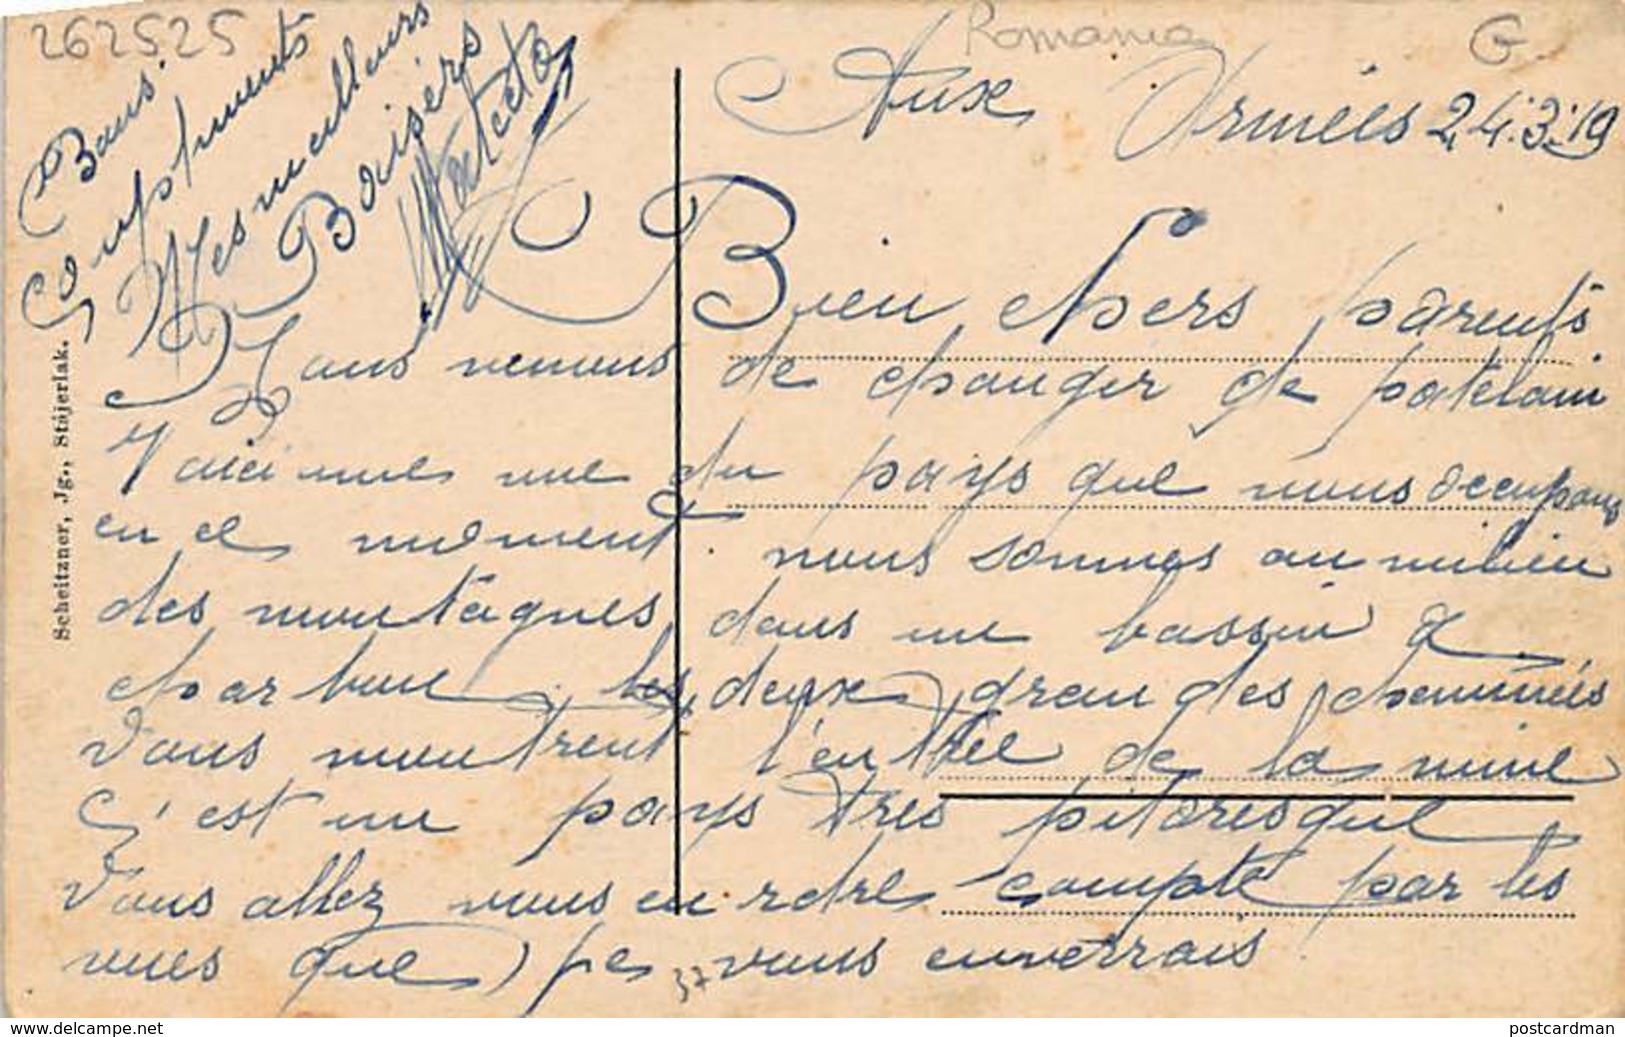 262525
Romania
G
Aux Armées 24.3.19
Bien chers parents
Nous venons de changer de patelain
Voici une vue du pays que nous occupons
en ce moment. nous sommes au milieu
des montagnes dans un bassin à
charbon les deux grandes cheminées
vous montrent l'entrée de la mine
C'est un pays très pitoresque
Vous allez vous en rdre compte par les
vues que je vous enverrais
37
Bons.
Compliments
Mes meilleurs
Baisers
Scheitzner, Jg., Stájerlak.
www.delcampe.net
postcardman